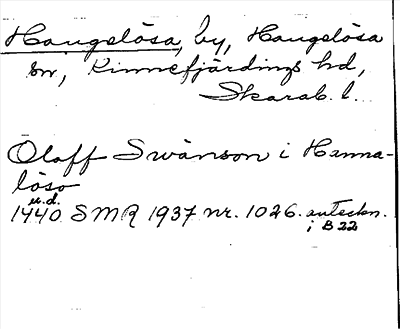 Hangelösa, by, Hangelösa
sn, Kinnefjärdings hd,
Skarab. l.
Olaff Swänson i Hanna-
löso
u.d.
1440 SMR 1937 nr. 1026. anteckn.
i B 22